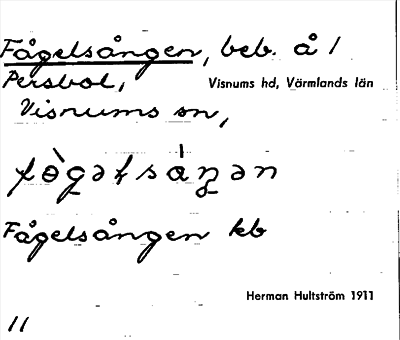 Fågelsången, beb. å /
Persbol,
Visnums hd, Värmlands län
Visnums sn,
Fågelsången kb
Herman Hultström 1911
11